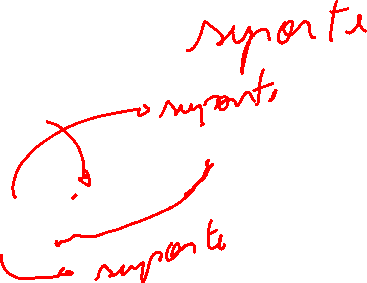 suporte
suporte
suporte